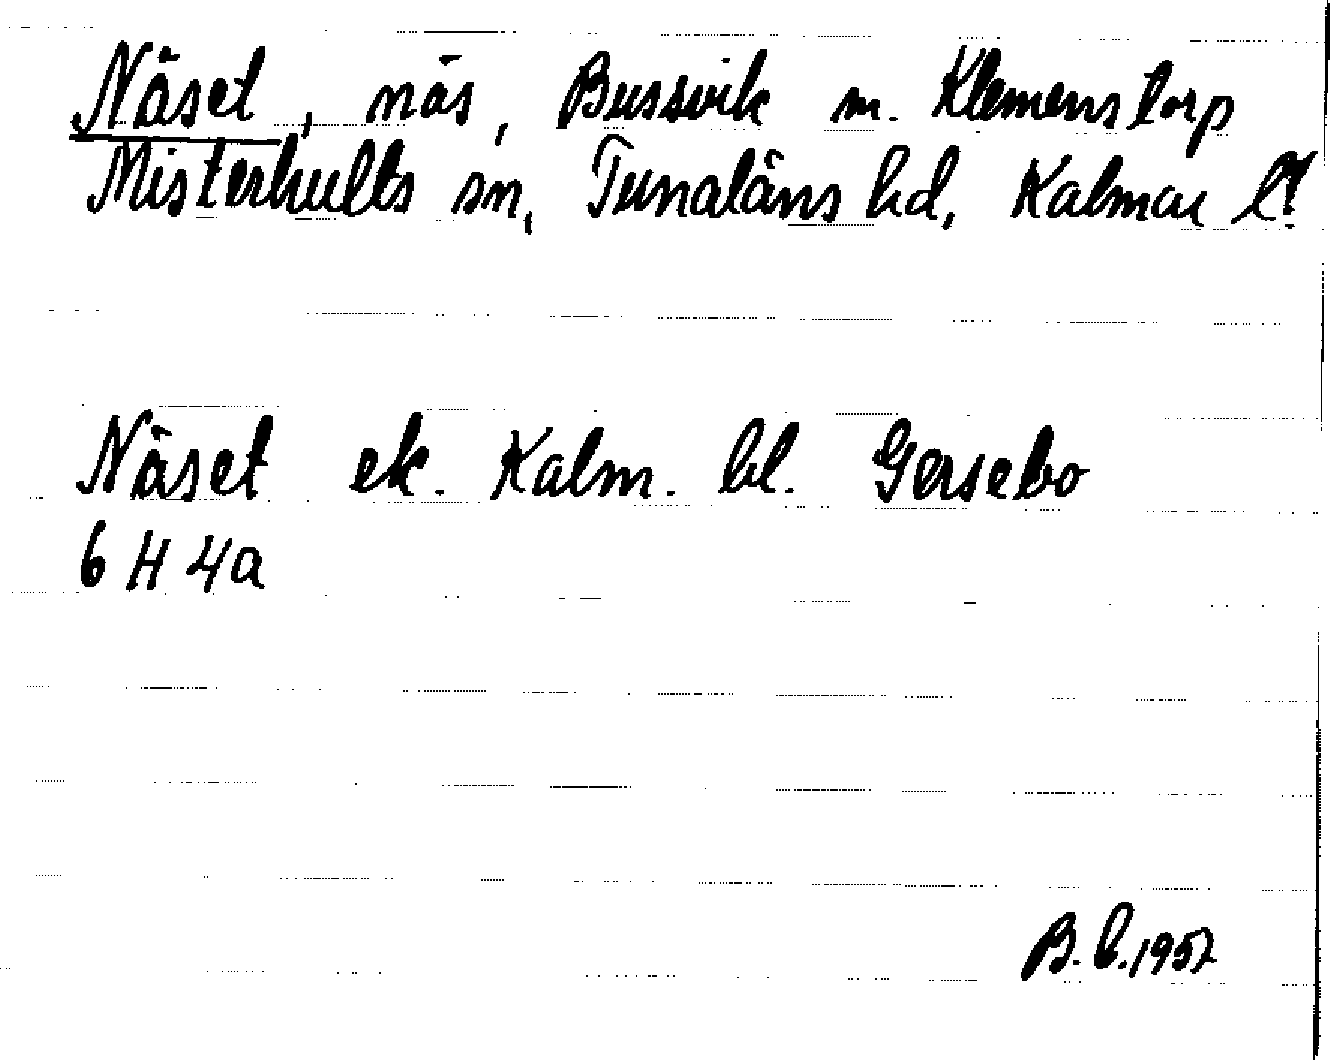 Näset, näs, Bussvik m. Klemenstorp
Misterhults sn, Tunaläns hd, Kalmar l.
Näset ek. Kalm. bl. Gersebo
6 H 4a
B.L. 1957